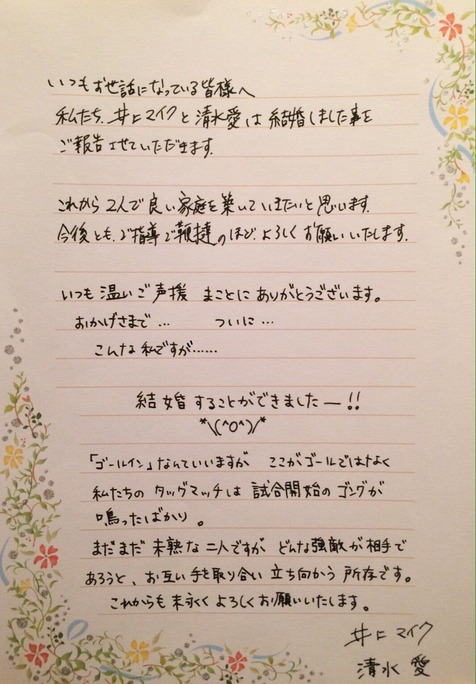 いつもお世話になっている皆様へ
私たち、井上マイクと清水愛は結婚しました事を
ご報告させていただきます。
これから2人で良い家庭を築いていきたいと思います。
今後とも、ご指導ご鞭撻のほど、よろしくお願いいたします。
いつも温いご声援 まことにありがとうございます。
おかげさまで… ついに…
こんな私ですが……
結婚することができましたー!!
*\(^o^)/*
「ゴールイン」なんていいますが ここがゴールではなく
私たちのタッグマッチは 試合開始のゴングが
鳴ったばかり。
まだまだ未熟な二人ですが どんな強敵が相手で
あろうと、お互い手を取り合い 立ち向かう所存です。
これからも末永くよろしくお願いいたします。
井上マイク
清水 愛